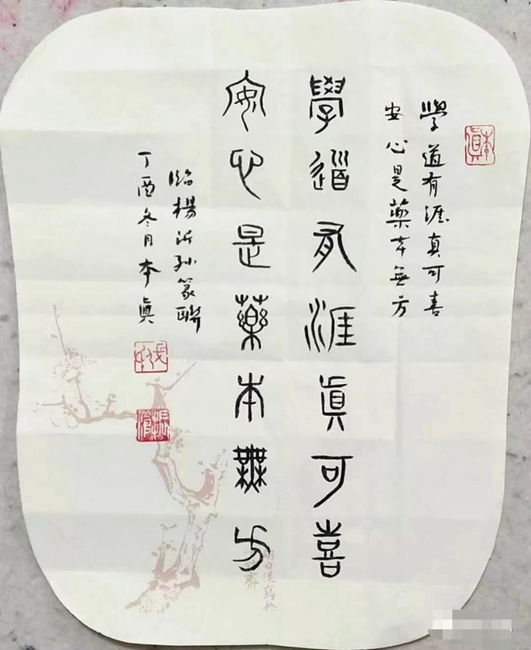 本真
學道有涯真可喜
安心是藥本無方
學道有涯眞可喜
安心是藥本無方
臨楊沂孫篆聯
丁酉冬月本眞